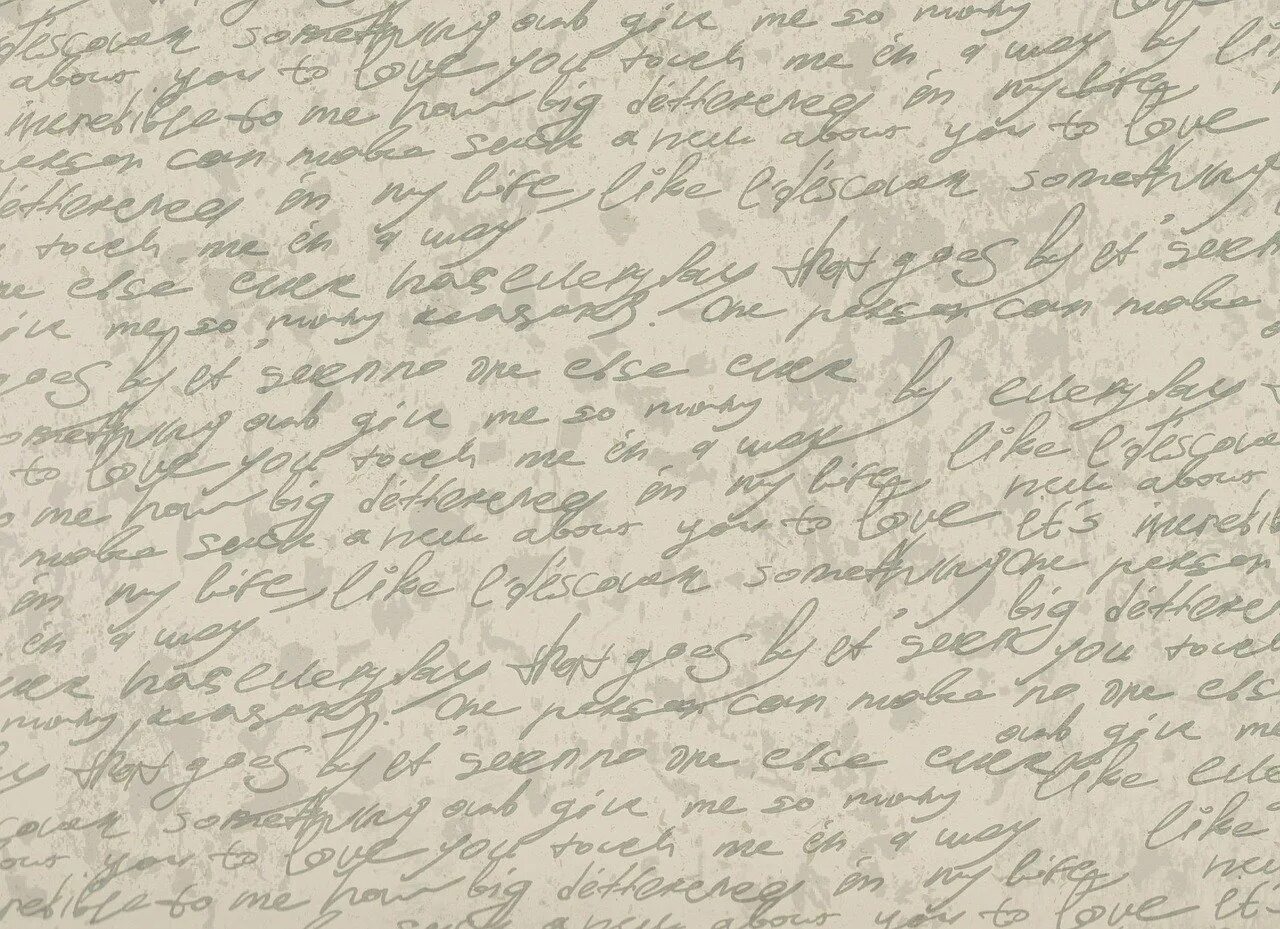 discover something and give me so many love
about you to love you touch me in a way by li
incredible to me how big défference in my life
person can make such a new about you to love
défference in my life, like I discover something
touch me in a way
one else ever has every day that goes by it seem
give me so many reasons. One person can make
goes by it seem no one else ever by every day
something and give me so many
to love you touch me in a way like I discover
to me how big défference in my life new about
make such a new about you to love it's incredib
in my life, like I discover something One person
big défferen
in a way
ever has every day that goes by it seem you touch
many reasons. One person can make no one else
and give me
that goes by it seem no one else ever like eve
discover something and give me so many like
about you to love you touch me in a way
incredible to me how big défference in my life new
such a new about you to love it's